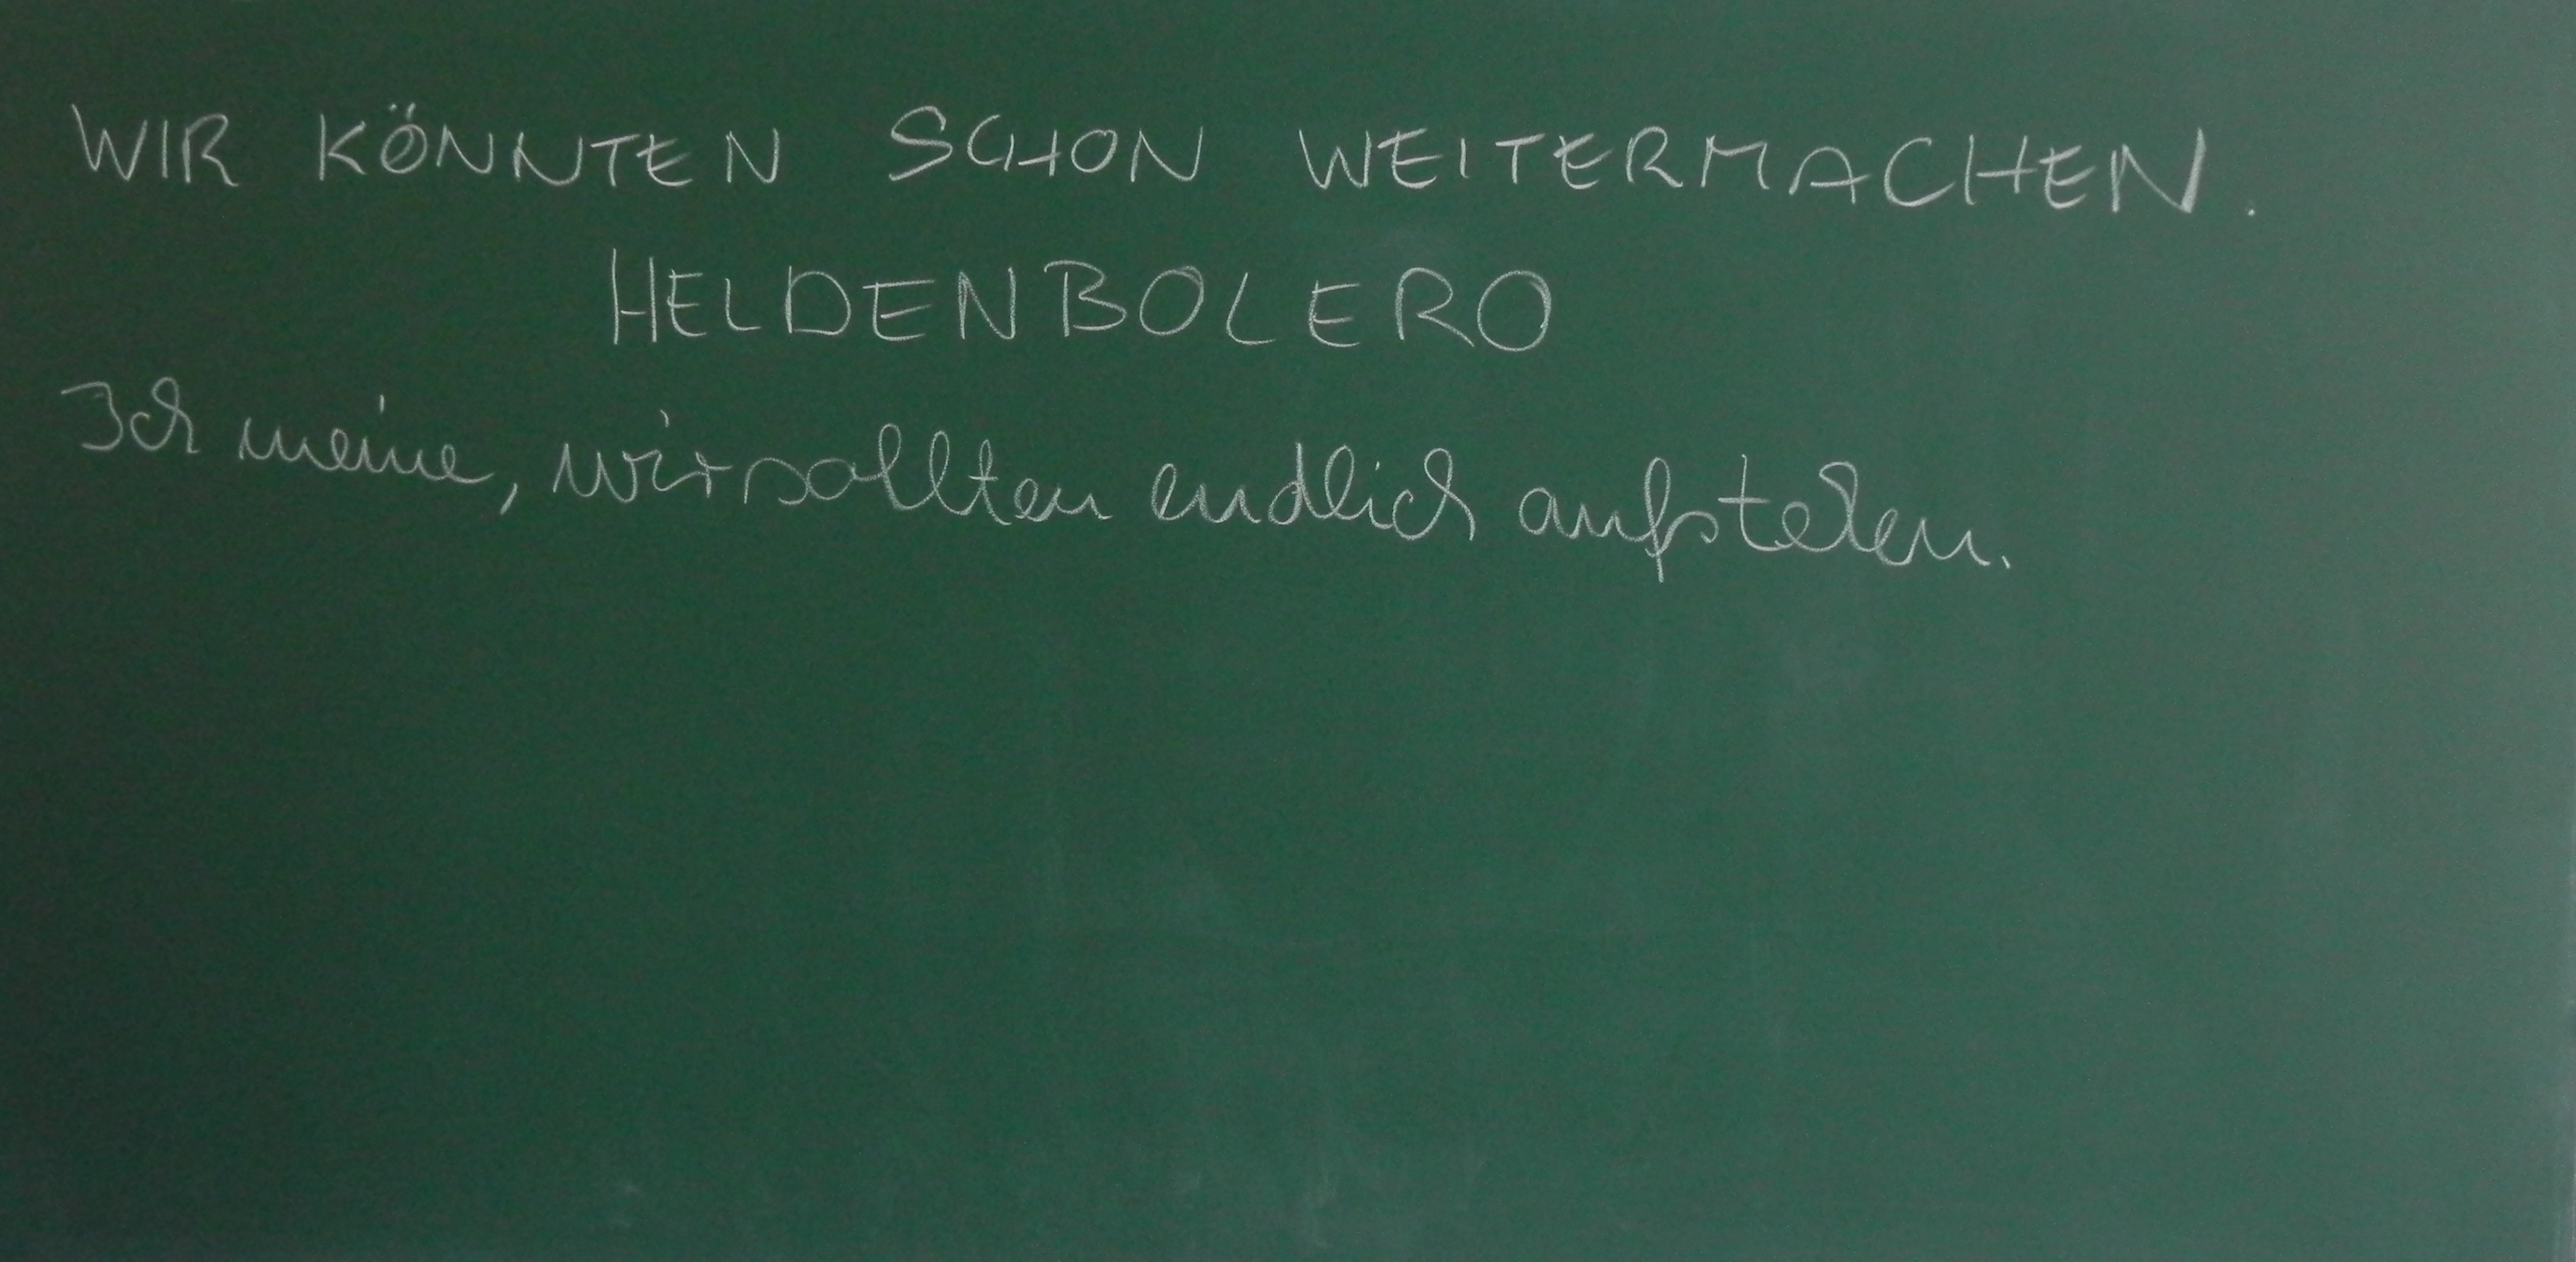 WIR KÖNNTEN SCHON WEITERMACHEN.
HELDENBOLERO
Ich meine, wir sollten endlich aufstehen.